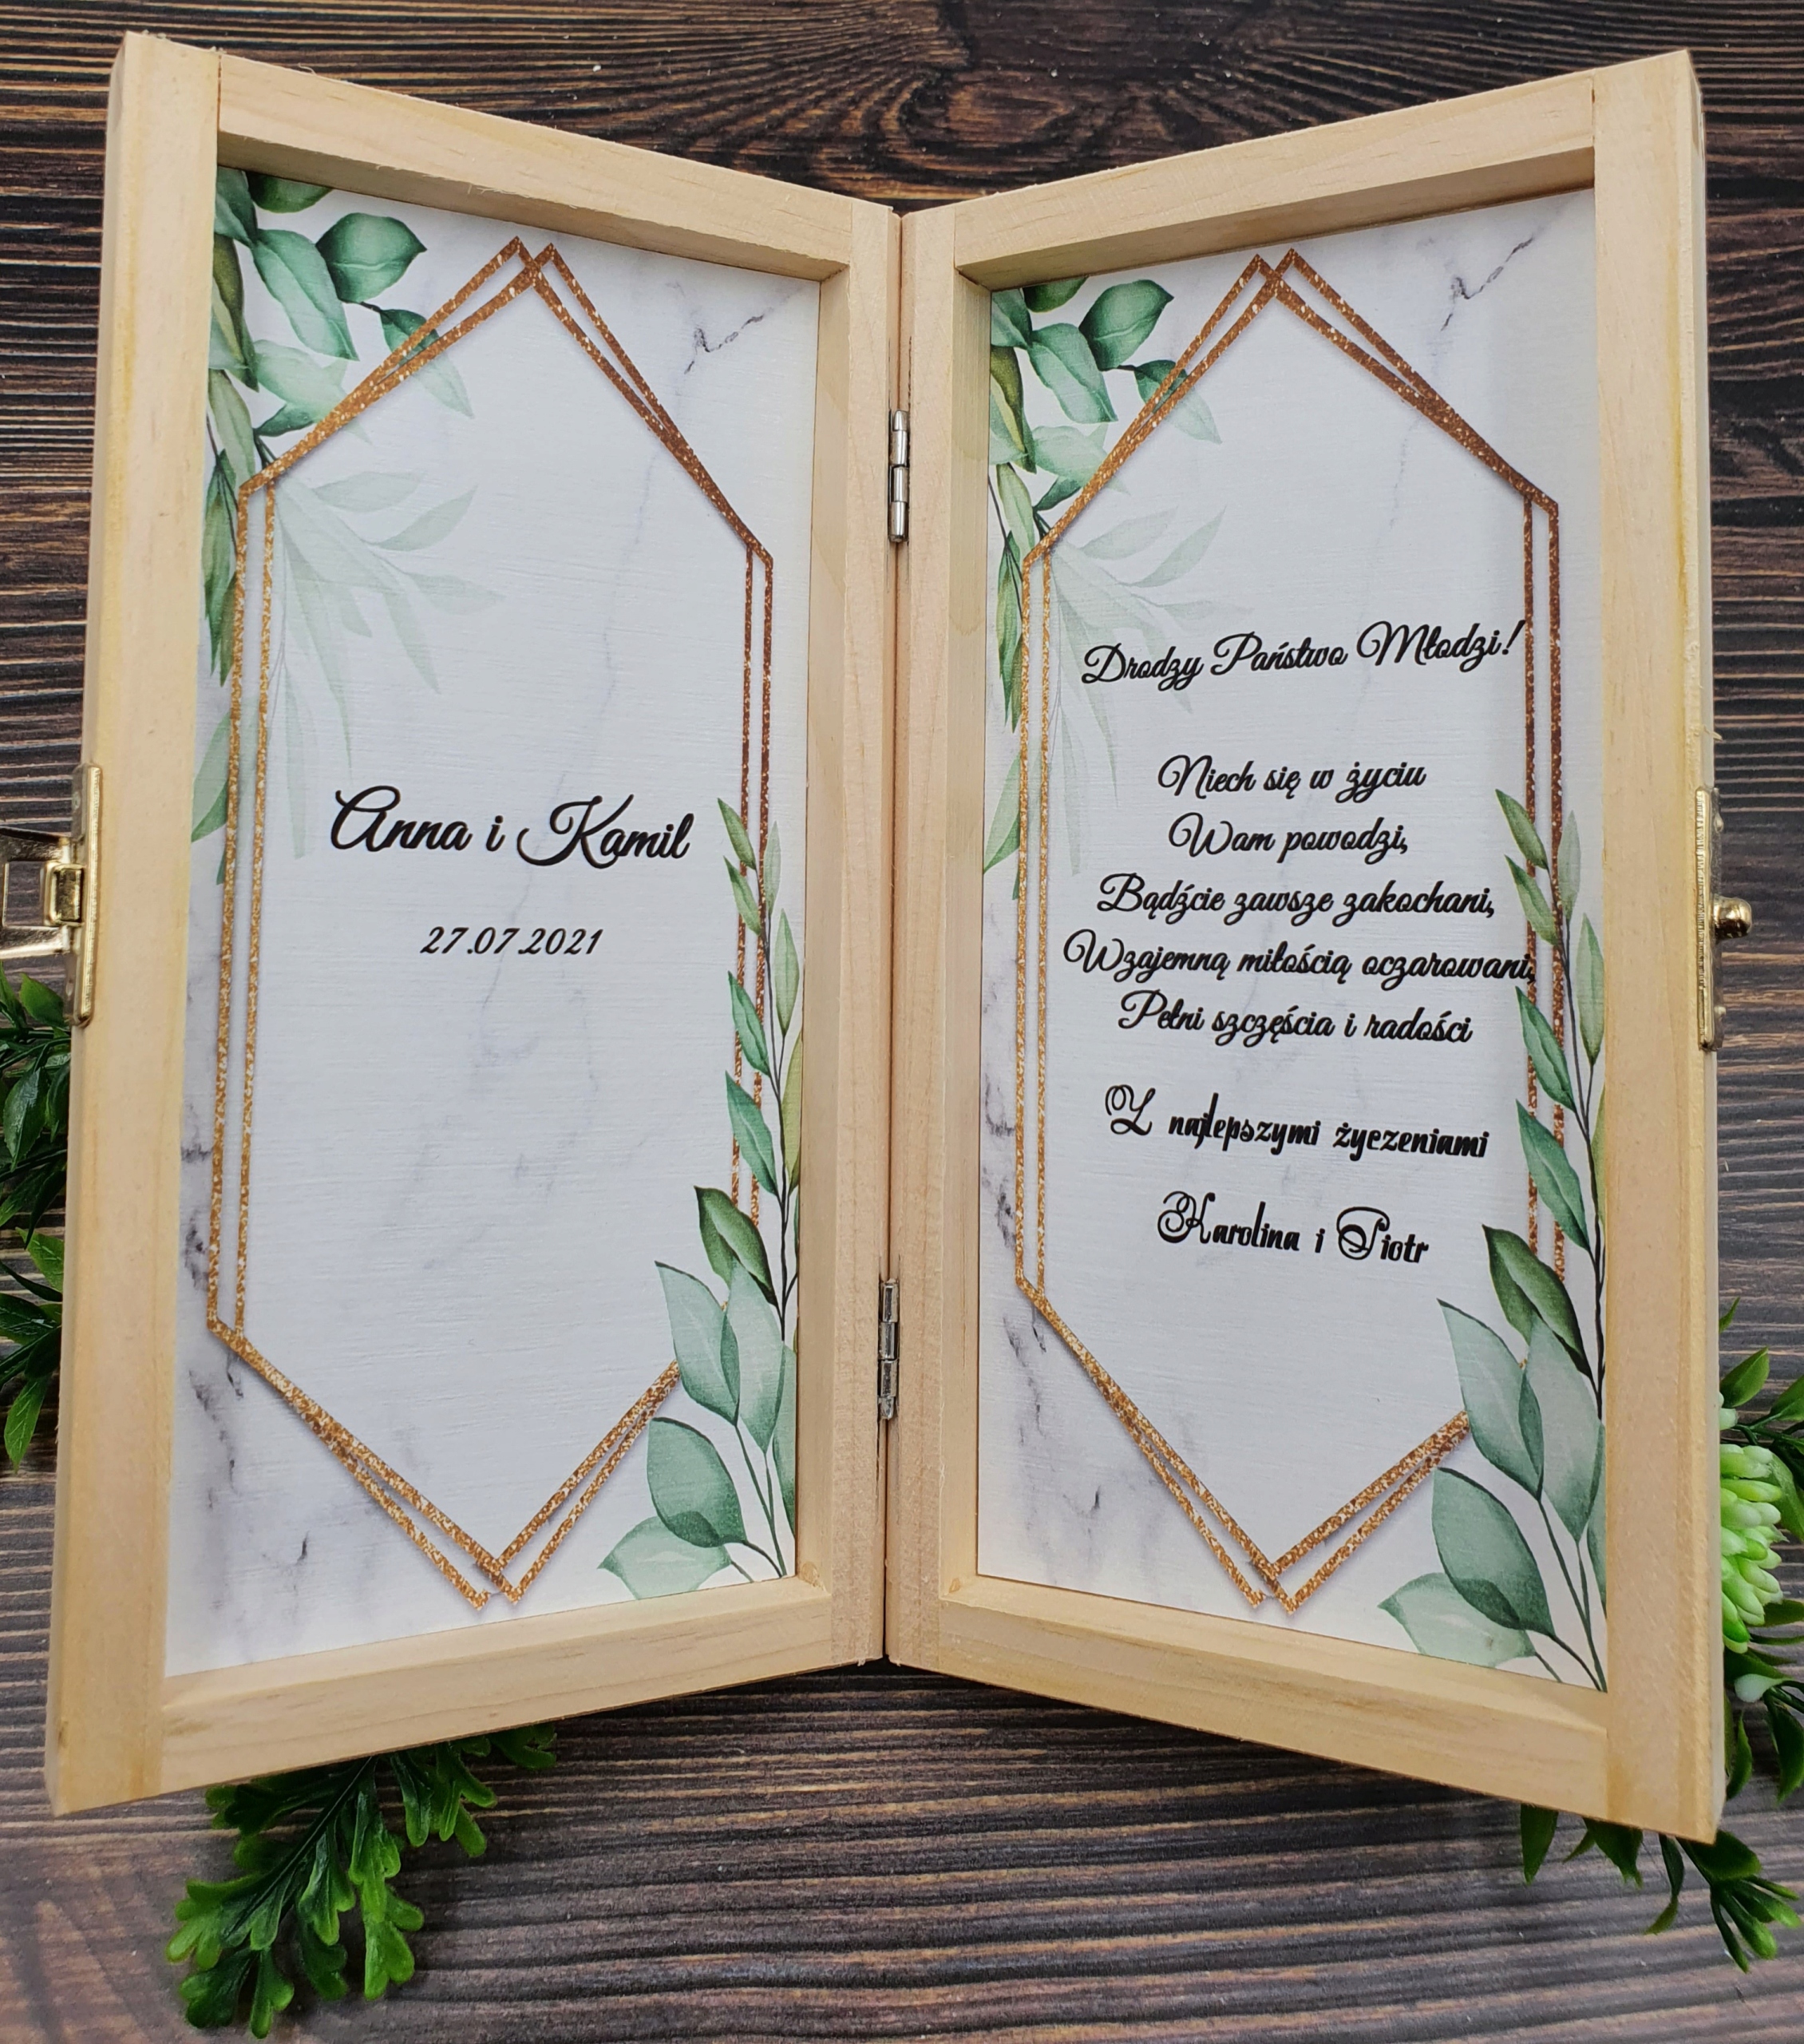 Anna i Kamil
27.07.2021
Drodzy Państwo Młodzi!
Niech się w życiu
Wam powodzi,
Bądźcie zawsze zakochani,
Wzajemną miłością oczarowani,
Pełni szczęścia i radości
Z najlepszymi życzeniami
Karolina i Piotr